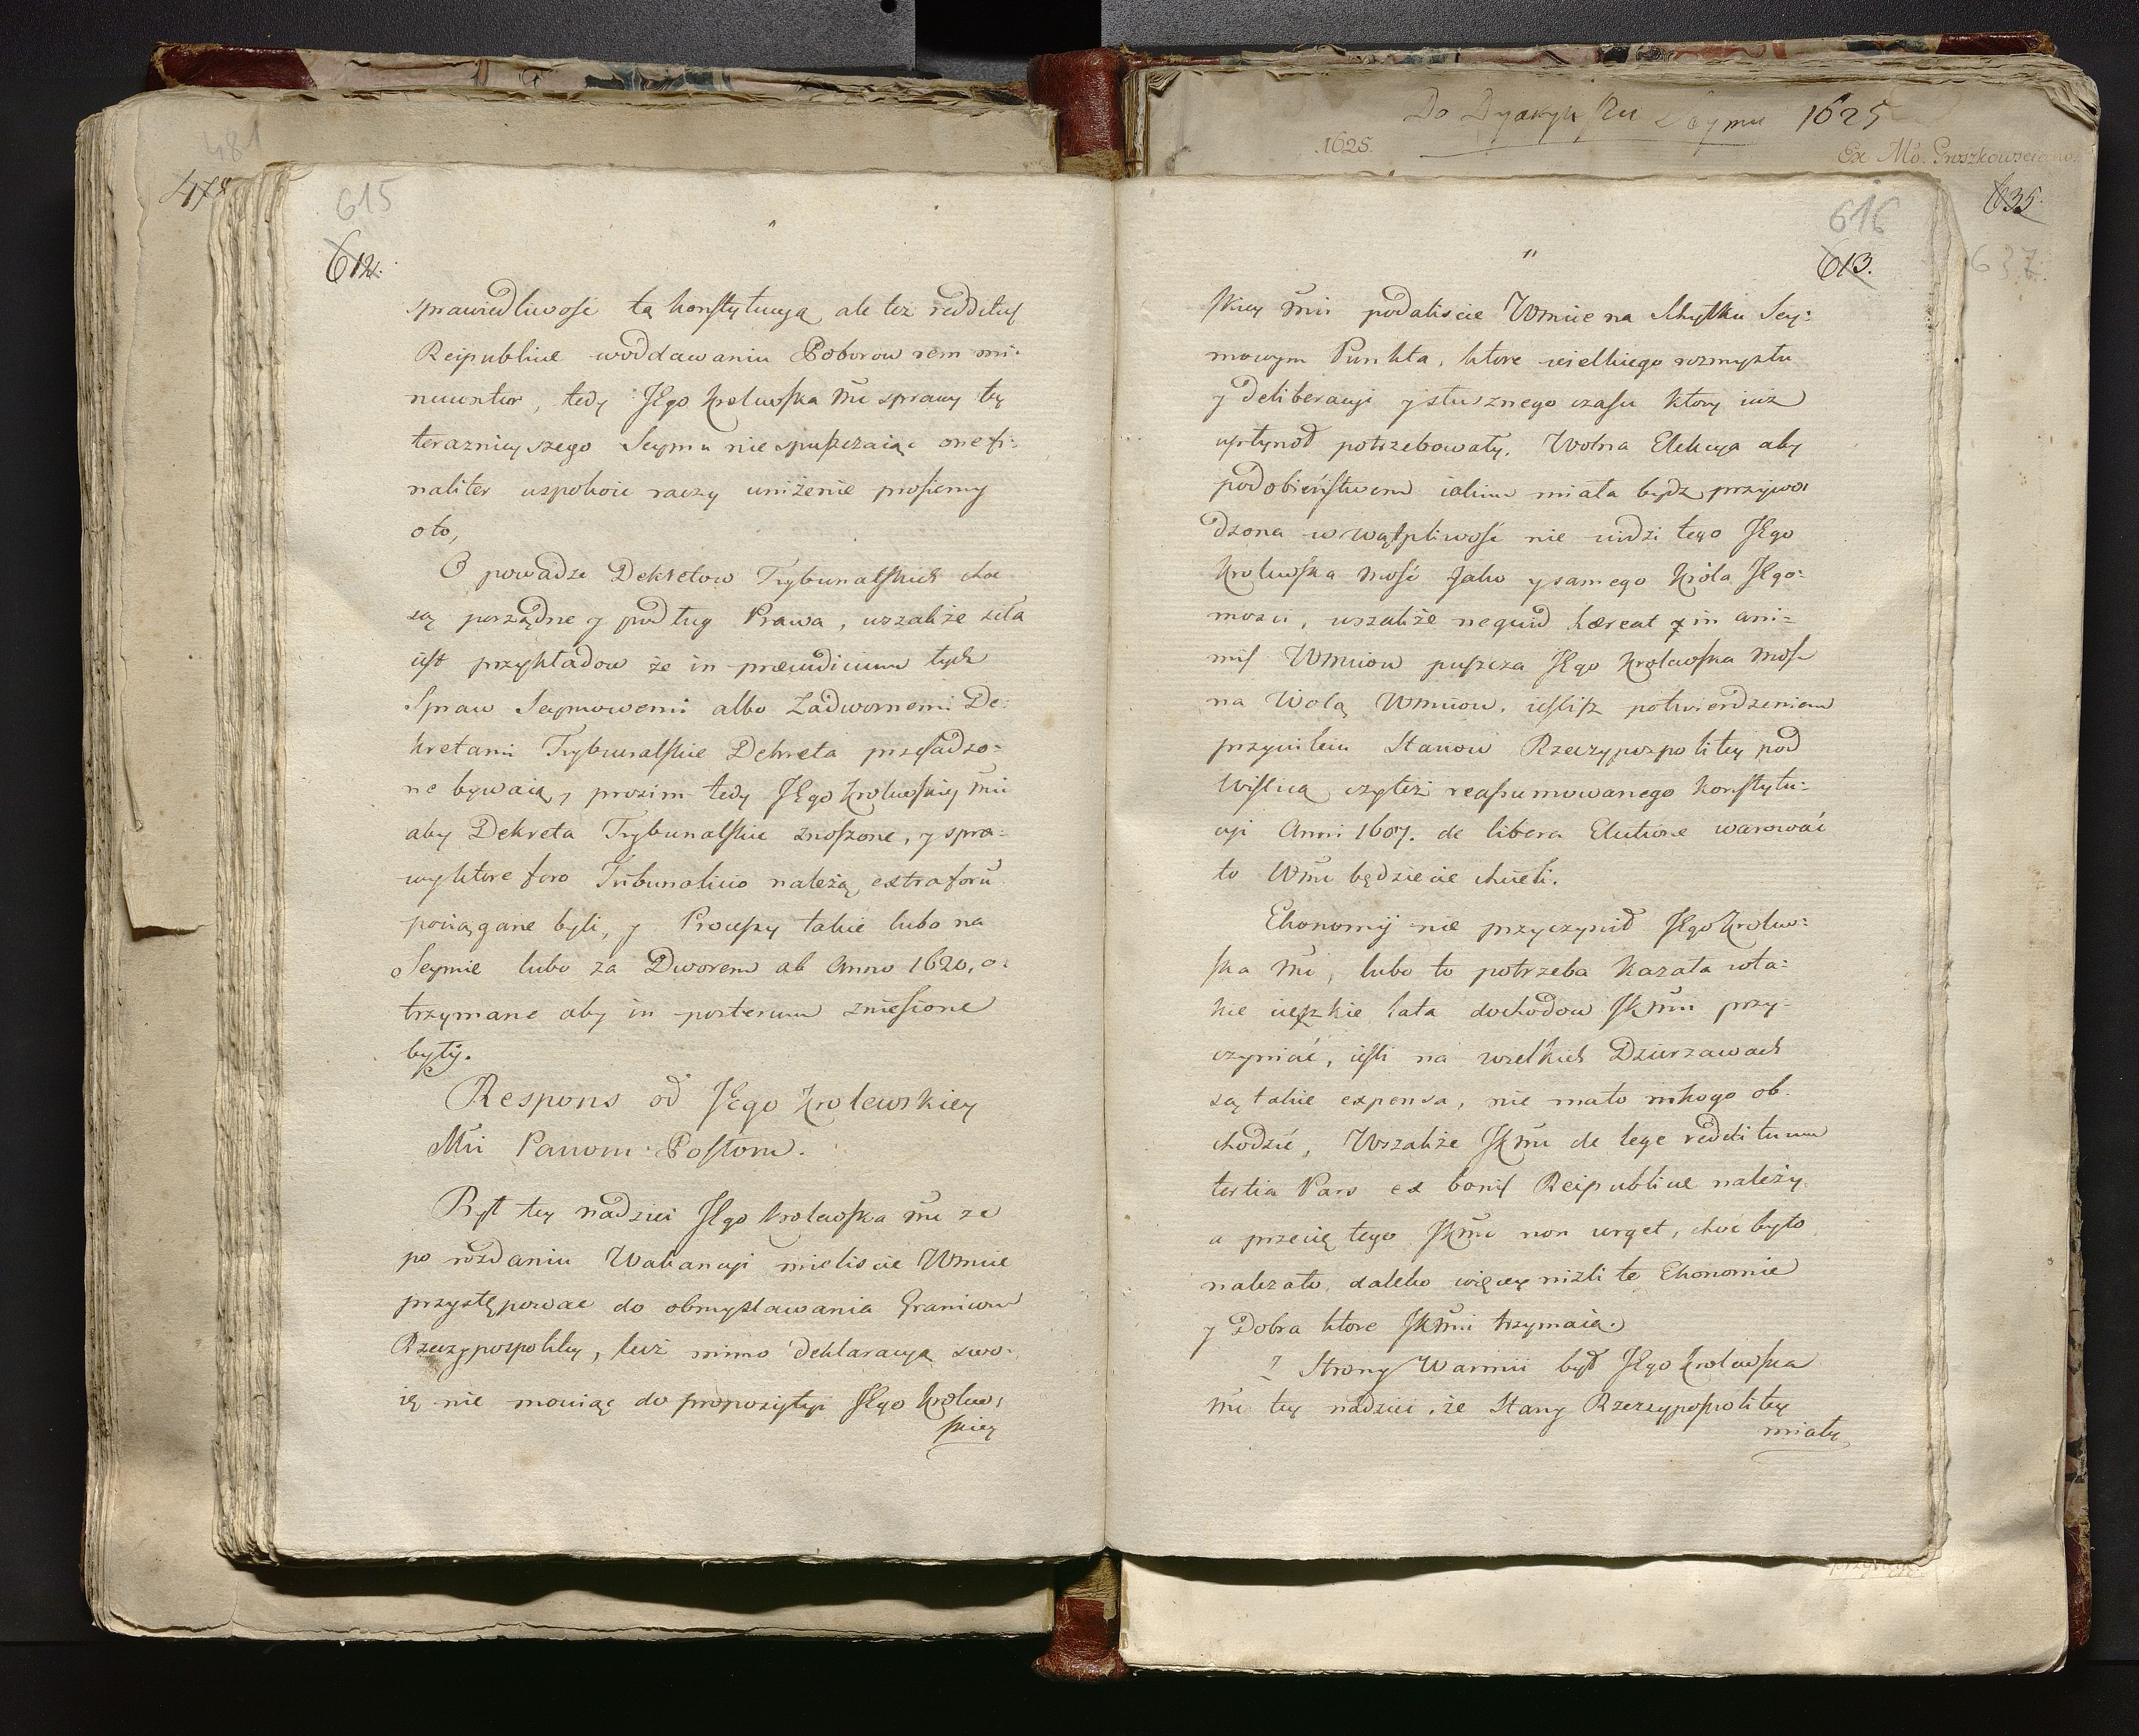 481
478
615
612.
sprawiedliwosć tą konstytucyą ale też redditus
Reipublicæ woddawaniu Poborow rem mi-
nuuntur, tedy JEgo Krolewska Mć sprawy tey
teraznieyszego Seymu nie spuszczaiąc one fi-
naliter uspokoic raczy uniżenie prosiemy
oto,
O powadze Dekretow Trybunalskich choc
są porządne y podług Prawa, wszakże siła
iest przykładow że in præiudicium tych
Spraw Seymowemi albo Zadwornemi De-
kretami Trybunalskie Dekreta przesadzo-
ne bywaią, prosim tedy JEgo Krolewskiey Mci
aby Dekreta Trybunalskie znoszone, y spra-
wy ktore foro Tribunalicio należą, extra forū
pociągane byli, y Processy takie lubo na
Seymie lubo za Dworem ab Anno 1620, o-
trzymane aby in posterum zniesione
były.
Respons od JEgo Krolewskiey
Mci Panom Posłom.
Był tey nadziei JEgo Krolewska Mć ze
po rozdaniu Wakancyi mieliscie Wmcie
przystępowac do obmyslawania Granicom
Rzeczypospolitey, lecz mimo deklaracyą swo-
ię nie mowiąc do propozycyi JEgo Krolew-
skiey
Do Dyaryuszu Seymu 1625
1625.
Ex Mo. Proszkowsciano.
635.
637.
616
613.
skiey Mci podaliscie Wmcie na Schyłku Sey-
mowym Punkta, ktore wielkiego rozmysłu
y deliberacyi y słusznego czasu ktory iuż
upłynoł potrzebowały. Wolna Elekcya aby
podobieństwem iakim miała bydz przywo-
dzona w wątpliwosć nie widzi tego JEgo
Krolewska Mosć Jako y samego Króla JEgo-
mosci, wszakże nequid hæreat y in ani-
mis Wmciow puszcza JEgo Krolewska Mosć
na Wolą Wmciow, iesliż potwierdzeniem
przywileiu Stanow Rzeczypospolitey pod
Wislicą czyteż reassumowanego Konstytu-
cyi Anni 1607. de libera Elutione warować
to Wmć będziecie chcieli.
Ekonomij nie przyczynił JEgo Krolew-
ska Mć, lubo to potrzeba kazała wta-
kie cieszkie lata dochodow JKMci przy-
czyniać, iesli na wselkich Dzierzawach
są takie expensa, nie mało nikogo ob-
chodzić, Wszakże JKMci de lege reddituum
tertia Pars ex bonis Reipublicæ należy
a przecię tego JKMć non urget, choć było
nalezało, daleko więcey niżli te Ekonomie
y Dobra ktore JKMci trzymaią.
Z Strony Warmii był JEgo Krolewska
Mć tey nadziei, że Stany Rzeczypospolitey
miały